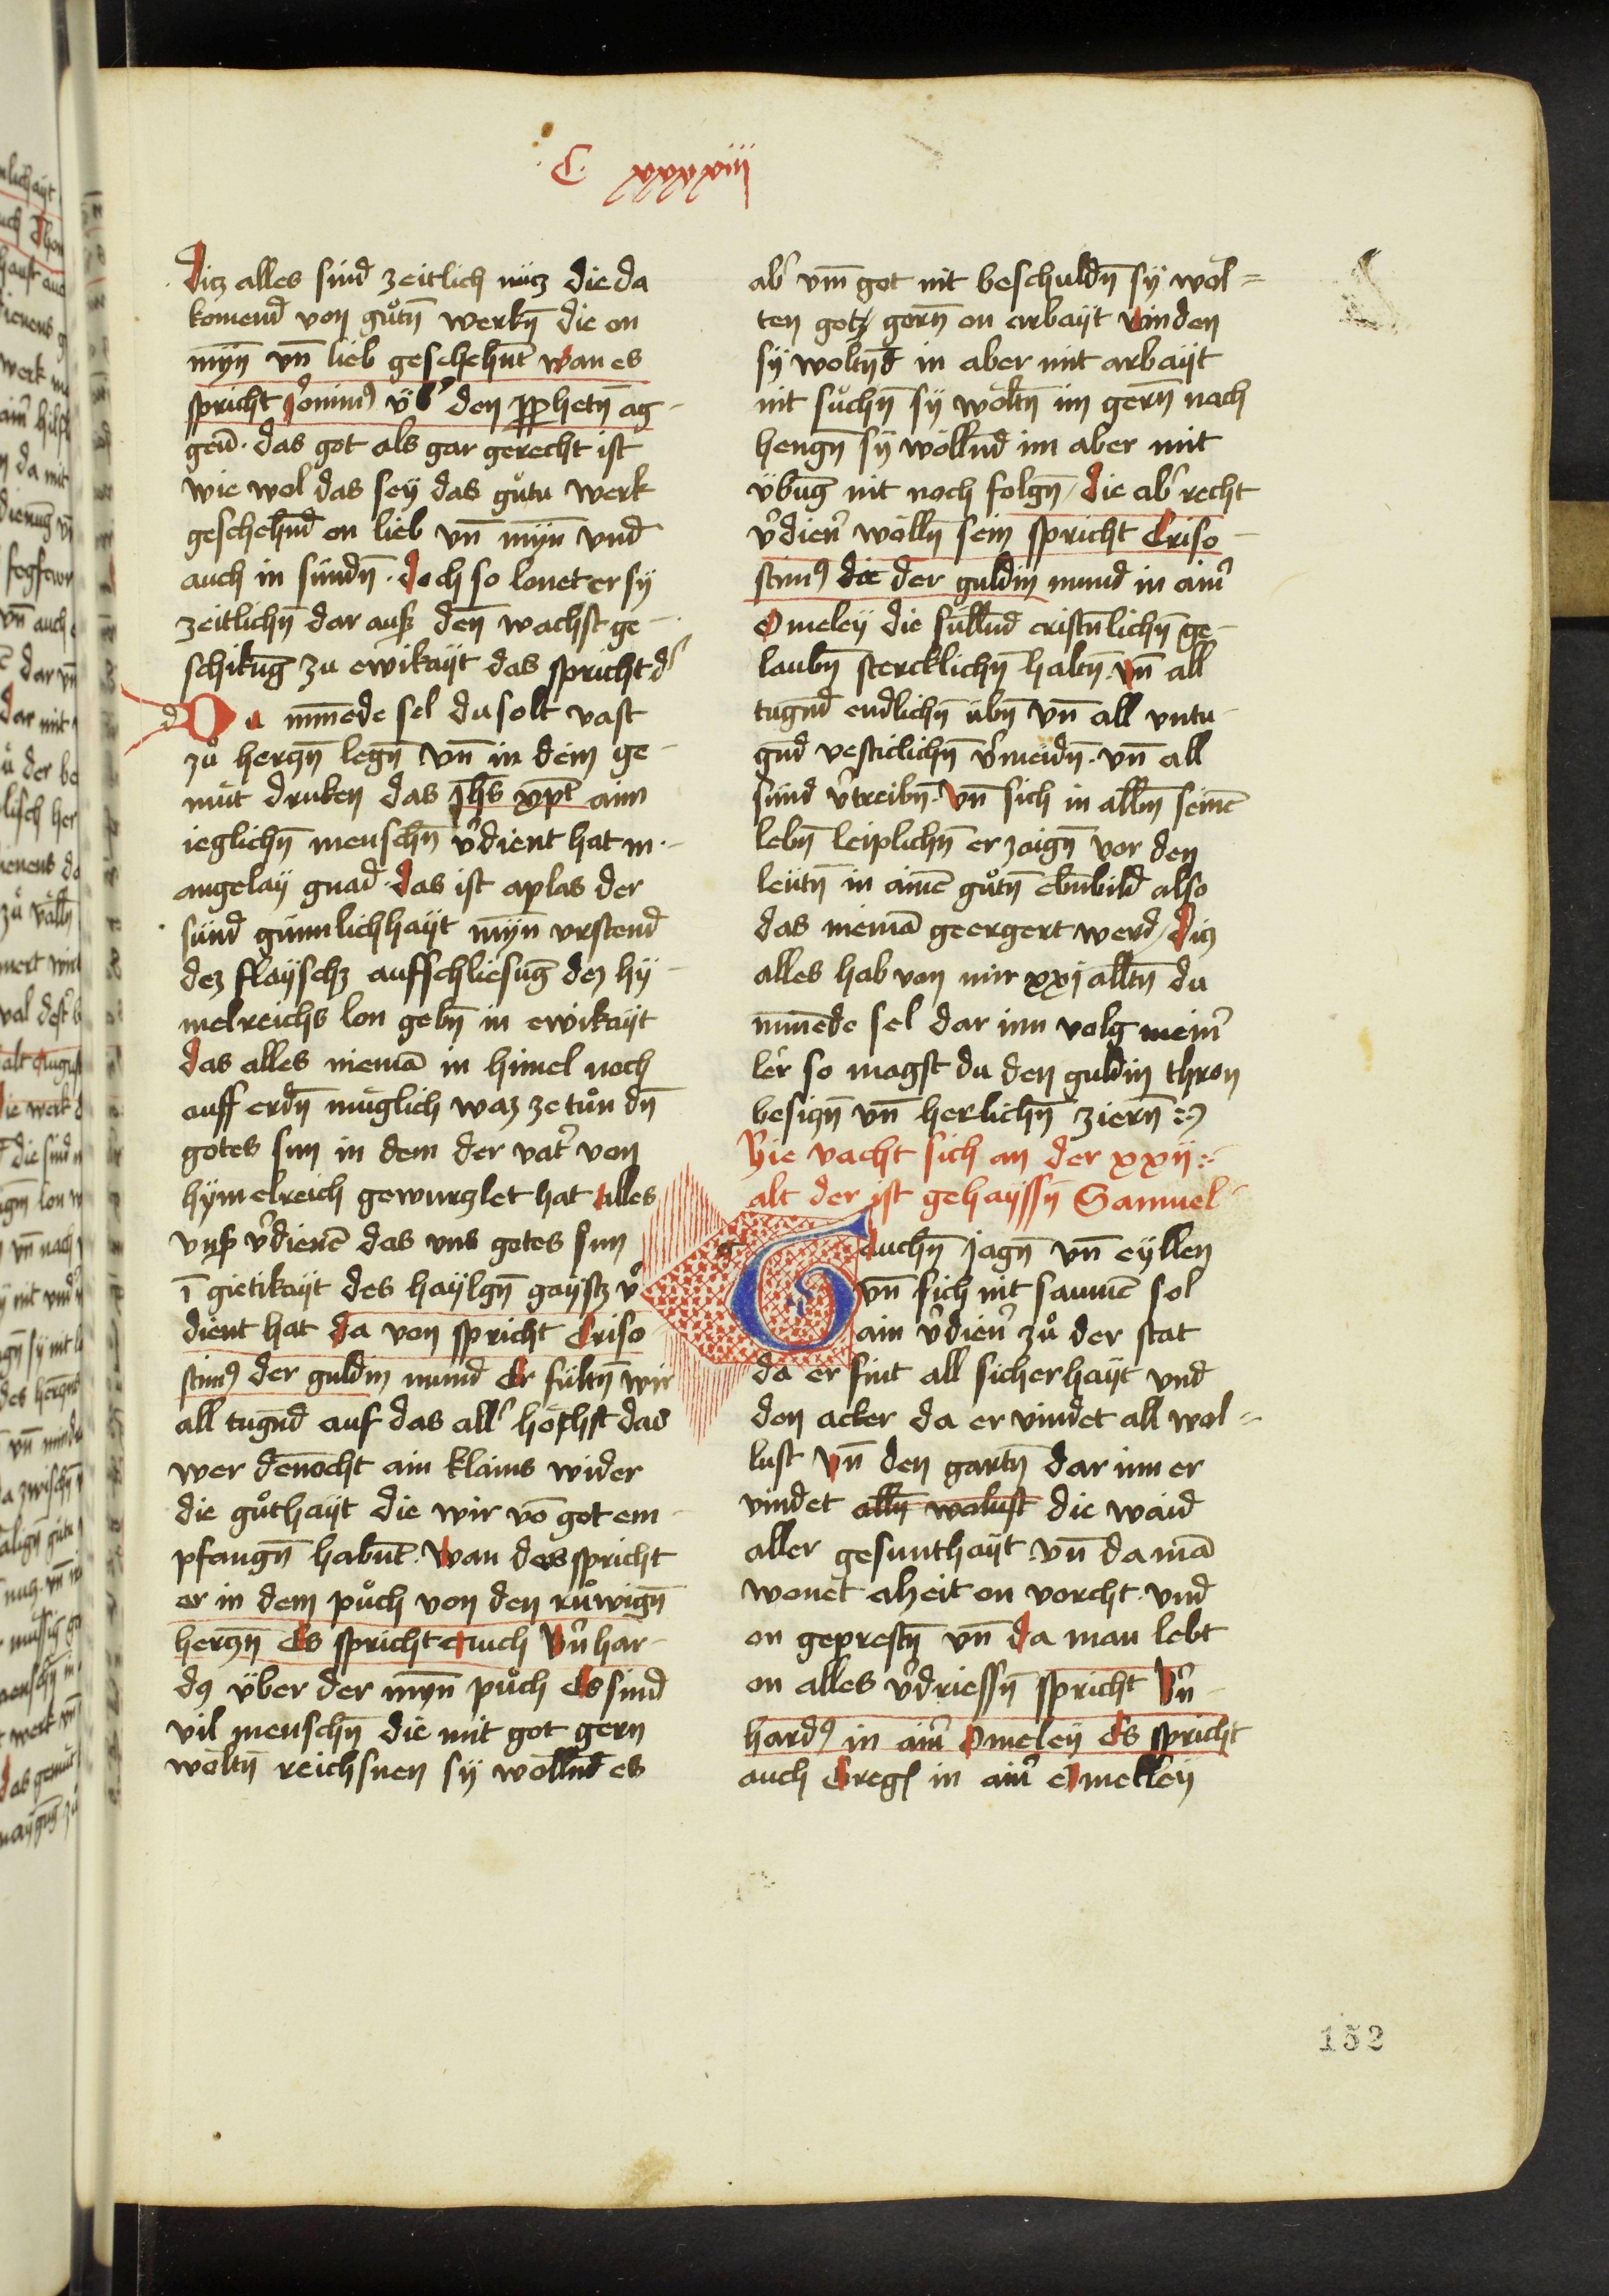 C xxxxxiiij
ditz alles sind zeitlich nütz die da
komend von gůtn̄ werkn̄ die on
myn̄ vn̄ lieb geschehnt wan es
spricht Jeronim⁹ üb͛ den ꝓphetn̄ ag-
geū · das got als gar gerecht ist
wie wol das sey das gůtu werk
geschehnd on lieb vn̄ myn̄ vnd
auch in sündn̄ · doch so lonet er sy
zeitlichn̄ dar auß den̄ wachst ge-
schikuḡ zu ewikayt das spricht d͛
Du mn̄ede sel du solt vast
zů hertzn̄ legn̄ vn̄ in dein ge-
müt druken das Jhs xp̄s aim
ieglichn̄ menschn̄ v͛dient hat m-
angelay gnad · das ist aplas der
sünd günnlichhayt myn̄ vrstend
dez flayschz auffschliesuḡ dez hy-
melreichs lon gebn̄ in ewikayt
das alles niemā in himel noch
auff erdn̄ müglich waz ze tůn dn̄
gotes sun in dem der vat͛ von
hymelreich gewurtzlet hat alles
vnß v͛dienē das vns gotes sun
ī gietikayt des haylgn̄ gaystz v͛
dient hat da von spricht Criso
stim⁹ der guldin mund Er fültn̄ wir
all tugn̄d auf das all͛ höchst das
wer den̄ocht ain klains wider
die gůthayt die wir vō got em-
pfangn̄ habūt · wan das spricht
er in dem půch von den růwign̄
hertzn̄ Es spricht auch Bn͛har-
d⁹ über der myn̄ půch Es sind
vil menschn̄ die mit got gern
wöltn̄ reichsnen sy wöllnd es
ab͛ vm̄ got nit beschuldn̄ sy wöl=
ten gotz gern̄ on arbayt vinden
sy woltn̄d in aber mit arbayt
nit sůchn̄ sy wöltn̄ im gern̄ nach
hengn̄ sy wöllnd im aber mit
übuḡ nit noch folgn̄ / die ab͛ recht
v͛dien͛ wölln̄ sein spricht Criso
stim⁹ der guldin mund in ain͛
Omeley die süllnd cristn̄lichn̄ ge-
laubn̄ stercklichn̄ habn̄ · vn̄ all
tugn̄d endlichn̄ übn̄ vn̄ all vntu-
gnd vesticlichn̄ v͛meidn̄ · vn̄ all
sünd v͛treibn̄ · vn̄ sich in allm̄ seinē
lebn̄ leiplichn̄ er zaign̄ vor den
leütn̄ in ainē gůtn̄ ebn̄bild also
das niemā geergert werd / ditz
alles hab von mir xxj alltn̄ du
mn̄ede sel dar inn volg mein͛
ler͛ so magst du den guldin thron
besitzn̄ vn̄ herlichn̄ zieren̄
Hie vacht sich an der xxij
alt der ist gehayssn̄ Samuel
Gauchn̄ jagn̄ vn̄ eyllen
vn̄ sich nit saumē sol
ain v͛dien͛ zů der stat
da er fint all sicherhayt vnd
den acker da er vindet all wol=
lust vn̄ den gartn̄ dar inn er
vindet alln̄ wolust die waid
aller gesunthayt vn̄ da mā
wonet aheit on vorcht · vnd
on geprestn̄ vn̄ da man lebt
on alles v͛driessn̄ spricht Bn͛-
hard⁹ in ain͛ Omeley Es spricht
auch Greg͛ in ain͛ Omelley
152